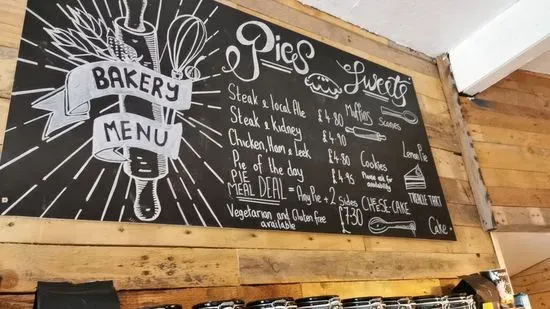 BAKERY
MENU
Pies
Steak & local Ale £4.80
Steak & Kidney £4.90
Chicken, Ham & Leek £4.80
Pie of the day £4.95
PIE
MEAL DEAL = Any Pie + 2 sides £7.30
Vegetarian and Gluten free
available
Sweets
Muffins
Scones
Cookies
Please ask for
availability
Lemon Pie
TREACLE TART
CHEESE-CAKE
Cake